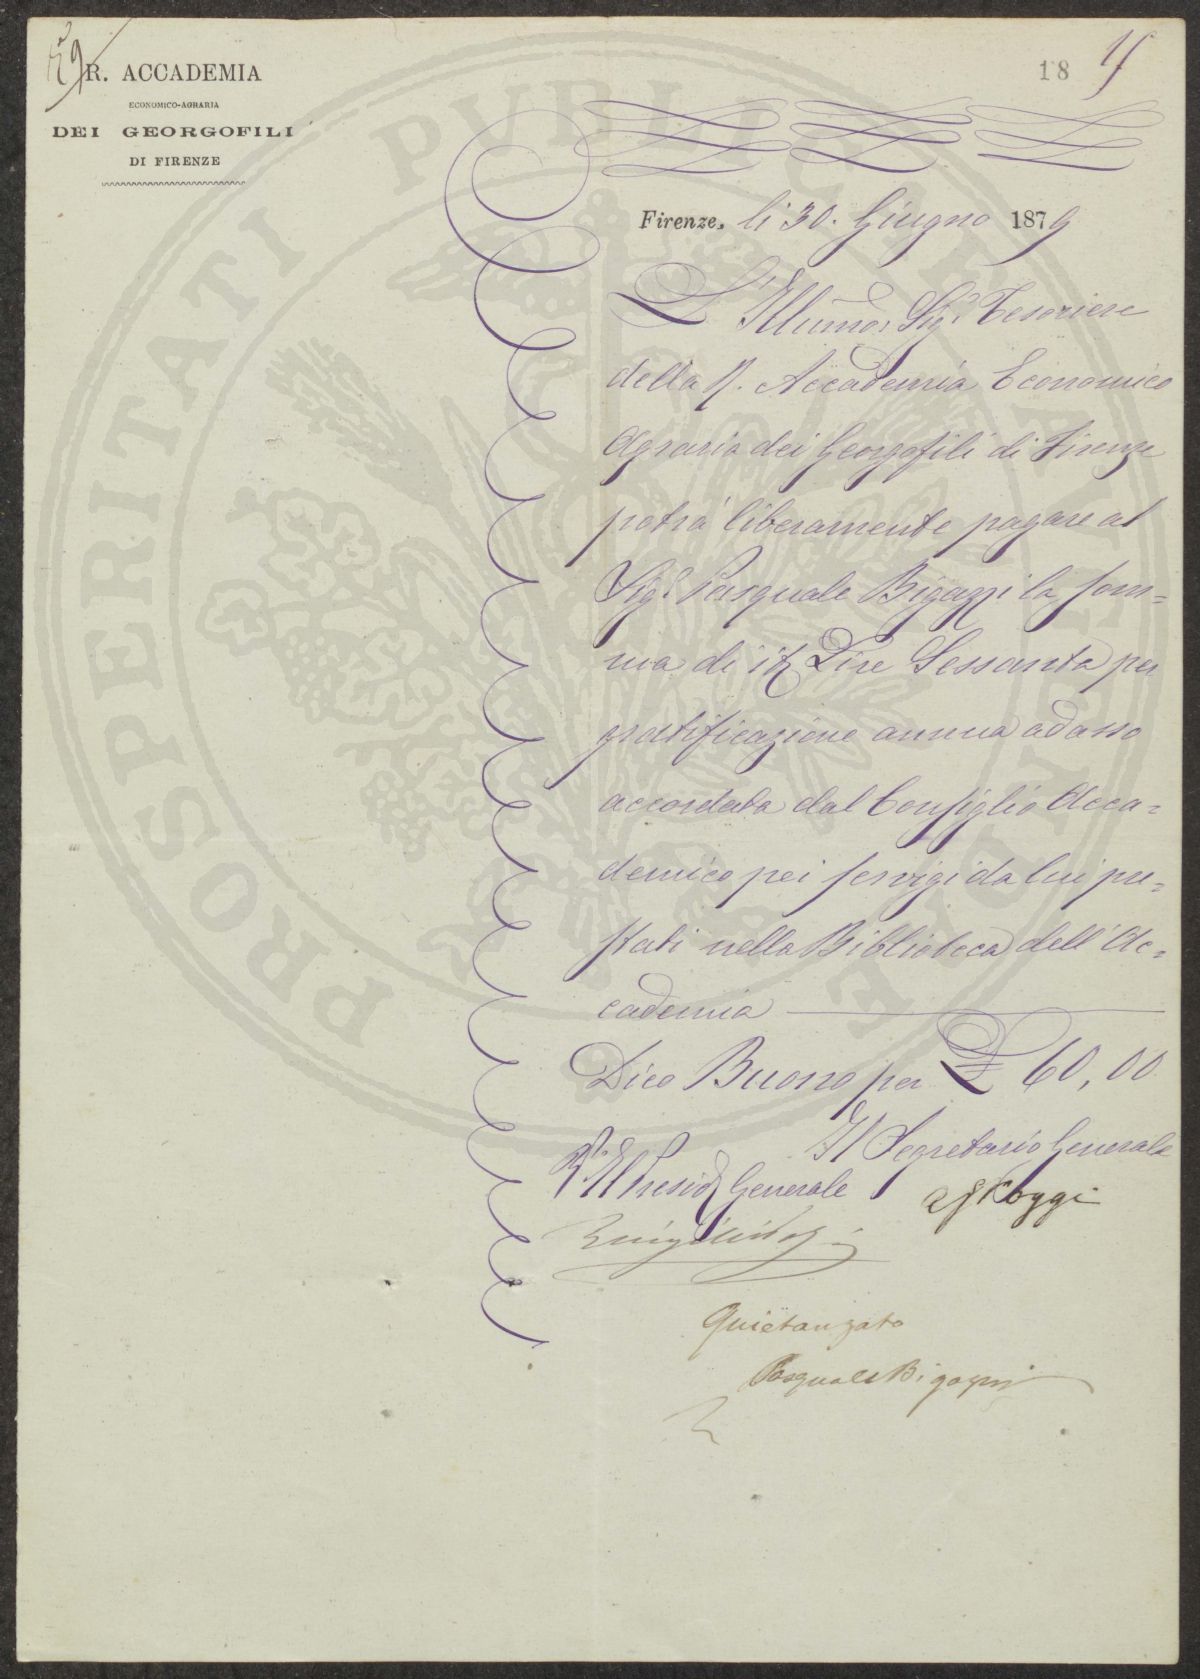 R. ACCADEMIA
ECONOMICO-AGRARIA
DEI GEORGOFILI
DI FIRENZE
18
PROSPERITATI PUBLICAE
Firenze, li 30. Giugno 1879
L'Illumo. Sigr. Tesoriere
della R. Accademia Economico
Agraria dei Georgofili di Firenze
potrà liberamente pagare al
Sigr. Pasquale Bigazzi la som=
ma di it. Lire Sessanta per
gratificazione annua ad esso
accordata dal Consiglio Acca=
demico pei servigi da lui pre=
stati nella Biblioteca dell'Ac=
cademia
Dico Buono per £ 60,00
Il Segretario Generale
Il Presid. Generale
Quietanzato
Pasquale Bigazzi